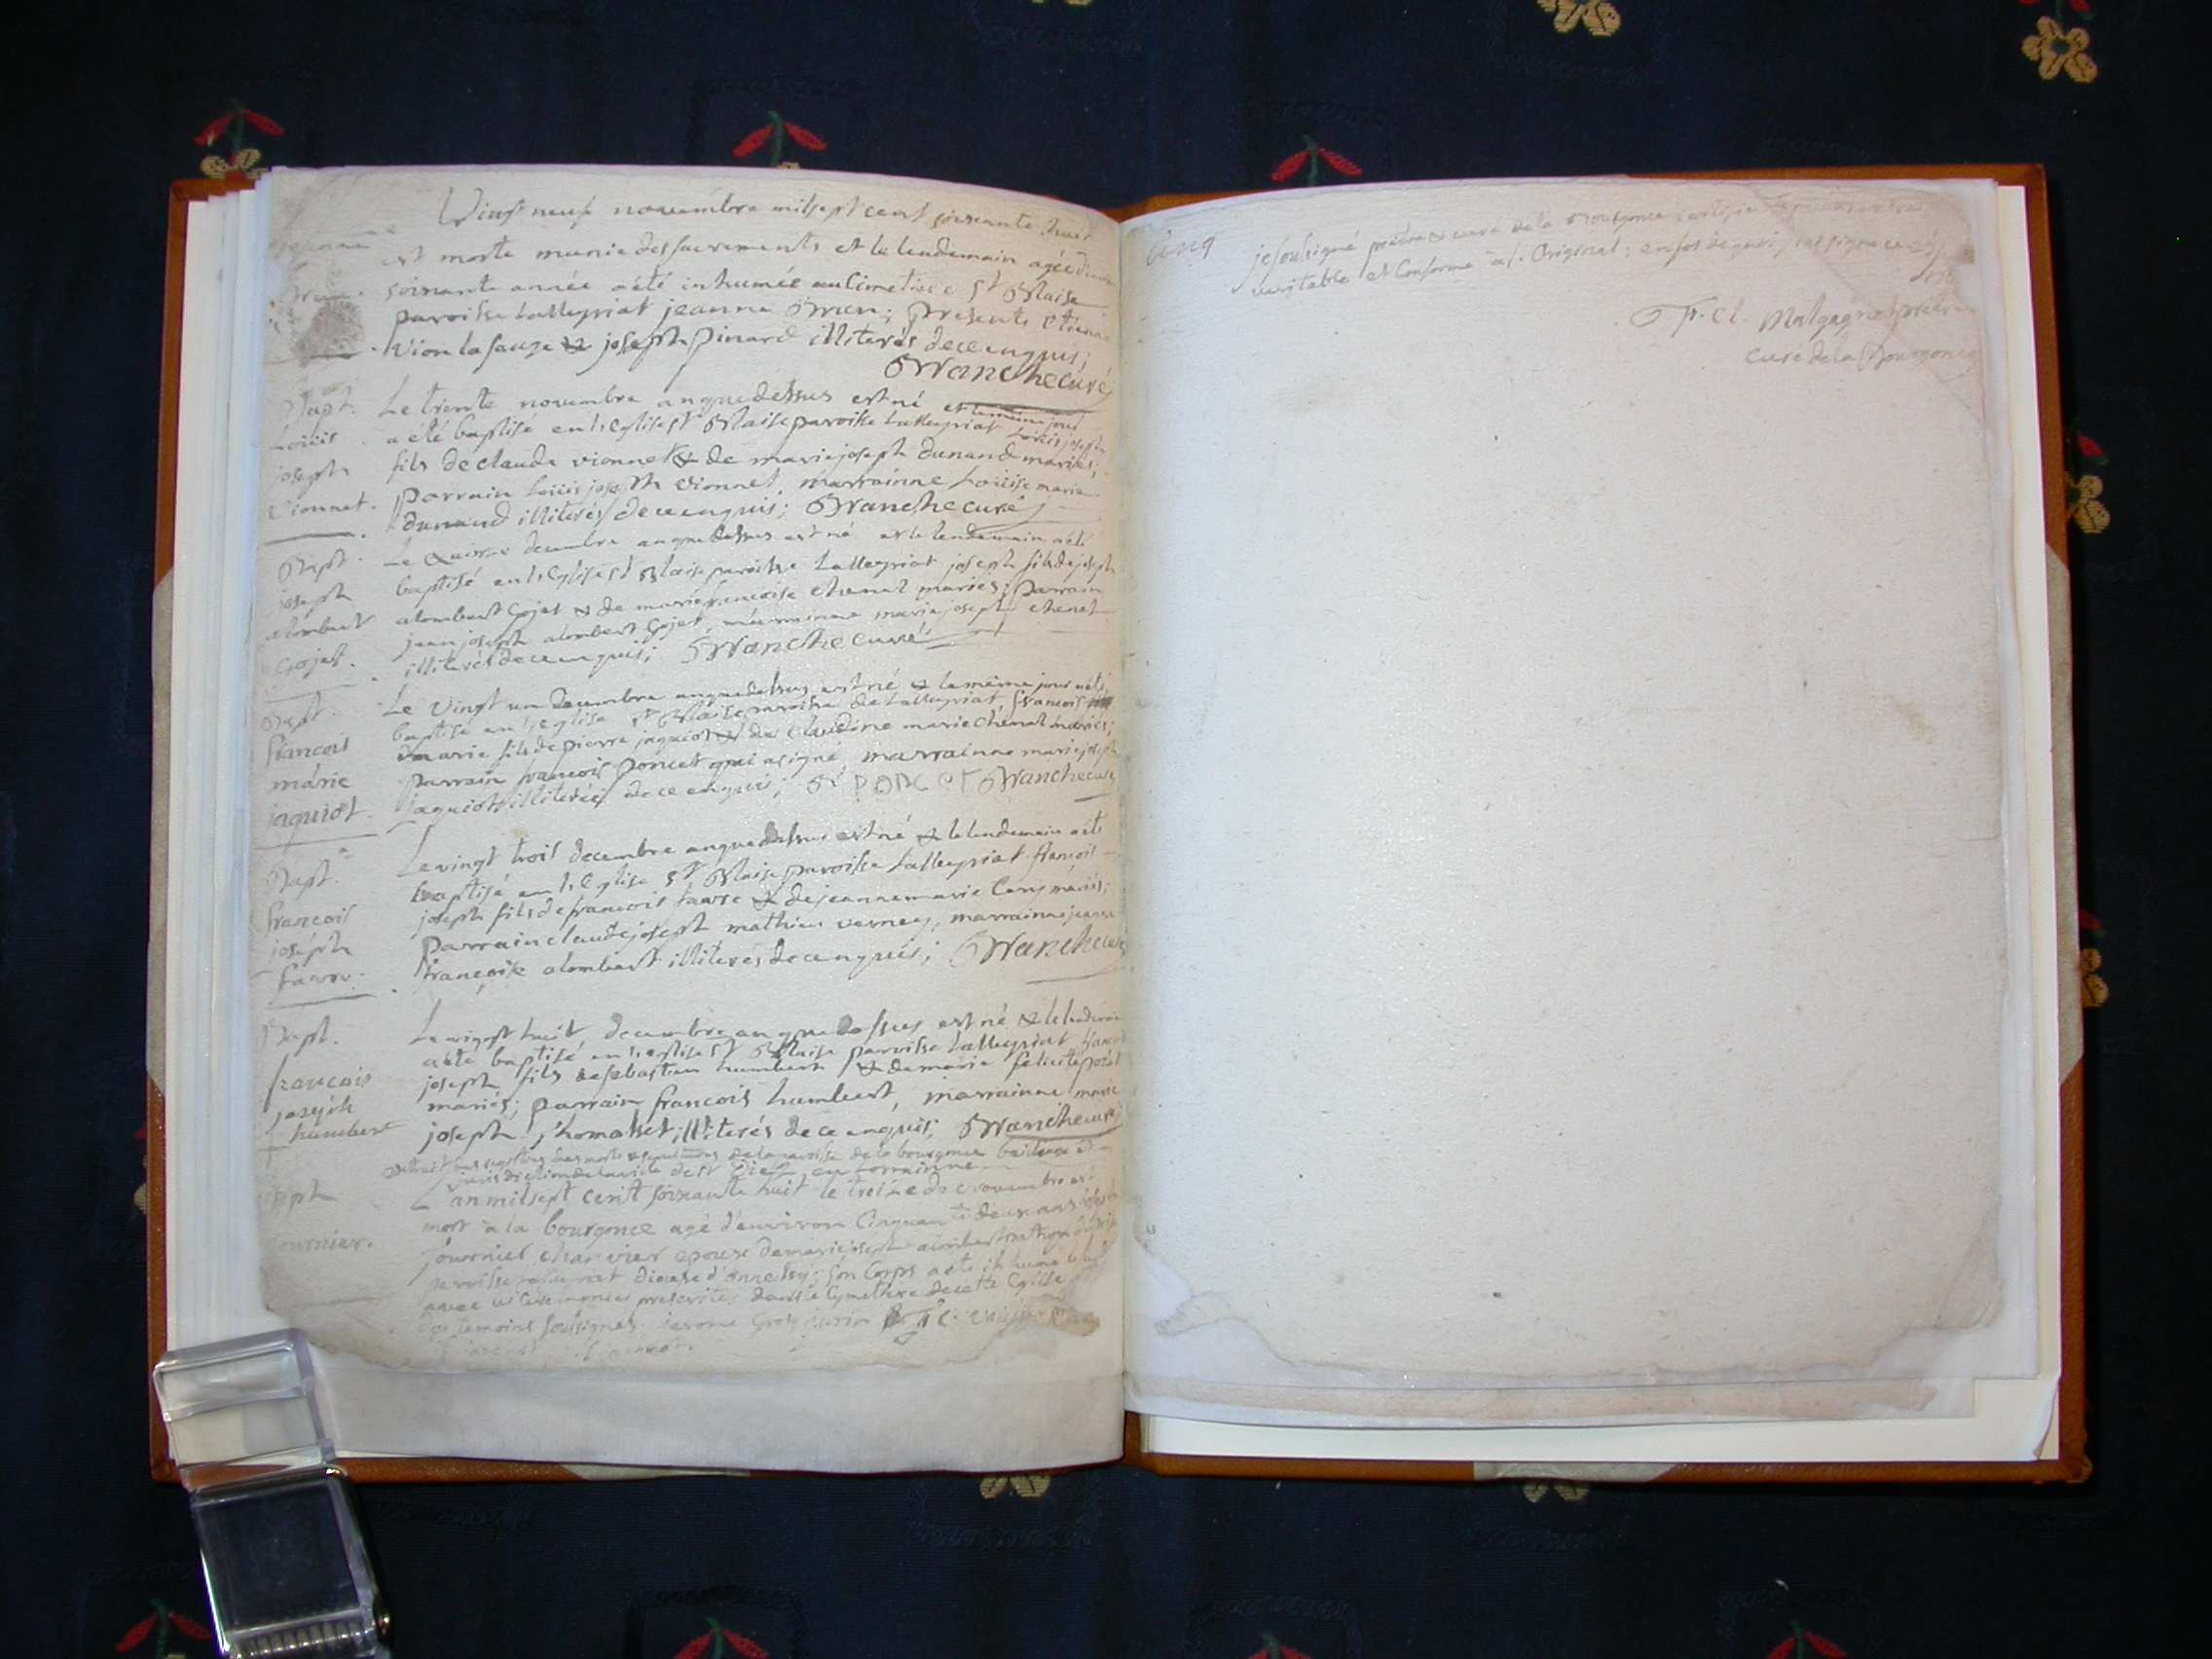 Vingt neuf novembre mil sept cent soixante huit
est morte munie des sacrements et le lendemain agée
soixante année a été inhumée au cimetiere St Blaise
paroisse Lalleyriat jeanne Brun; presents Etienne
Vion lafauge & joseph pinard illiterés de ce enquis;
Branche curé
Bapt.
Loüis
joseph
Vionnet.
Le trente novembre an que dessus est né et le meme jour
a été baptisé en l'eglise St Blaise paroisse Lalleyriat Loüis joseph
fils de claude vionnet & de marie joseph dunand mariés;
parrain Loüis joseph vionnet, marrainne Loüise marie
dunand illiterés de ce enquis; Branche curé
Bapt.
joseph
alombert
Gojet.
Le quinze decembre an que dessus est né et le lendemain a été
baptisé en l'eglise St Blaise paroisse Lalleyriat joseph fils de joseph
alombert Gojet & de marie francoise chenal mariés; parrain
jean joseph alombert Gojet, marrainne marie joseph chenal
illiterés de ce enquis; Branche curé
Bapt.
francois
marie
jaquiot.
Le Vingt un decembre an que dessus est né & le même jour a été
baptisé en l'eglise St Blaise paroisse de Lalleyriat, francois
marie fils de pierre jaquiot & de claudine marie chenal mariés;
parrain francois poncet qui a signé, marrainne marie joseph
jaquiot illiterée de ce enquis; PONCET Branche curé
Bapt.
francois
joseph
favre.
Le vingt trois decembre an que dessus est né & le lendemain a été
baptisé en l'Eglise St Blaise paroisse Lalleyriat francois
joseph fils de francois favre & de jeanne marie mariés;
parrain claude joseph mathieu verney, marrainne jeanne
francoise alombert illiterés de ce enquis; Branche curé
Bapt.
francois
joseph
humbert
Le vingt huit decembre an que dessus est né & le lendemain
a été baptisé en l'eglise St Blaise paroisse Lalleyriat francois
joseph fils de sebastien humbert & de marie felicité
mariés; parrain francois humbert, marrainne marie
joseph thomasset; illiterés de ce enquis; Branche curé
fournier.
Extrait des registres des morts & sepultures de la paroisse de la bourgonce bailliage et
jurisdiction de la ville de St Diez en Lorrainne
L'an mil sept cent soixante huit le troize de novembre est
mort à la bourgonce agé d'environ Cinquante deux ans
fournier epoux de marie joseph alombert
paroisse diocese d'annessy; son Corps a été inhumé
avec les ceremonies prescrites dans le Cymetiere de cette Eglise
des temoins soussignés. jerome
je soussigné prêtre & curé de la Bourgonce certifie
veritable et Conforme à l'Original; en foi de quoi j'ai signé
F. Cl. Malgagne prêtre
curé de la Bourgonce